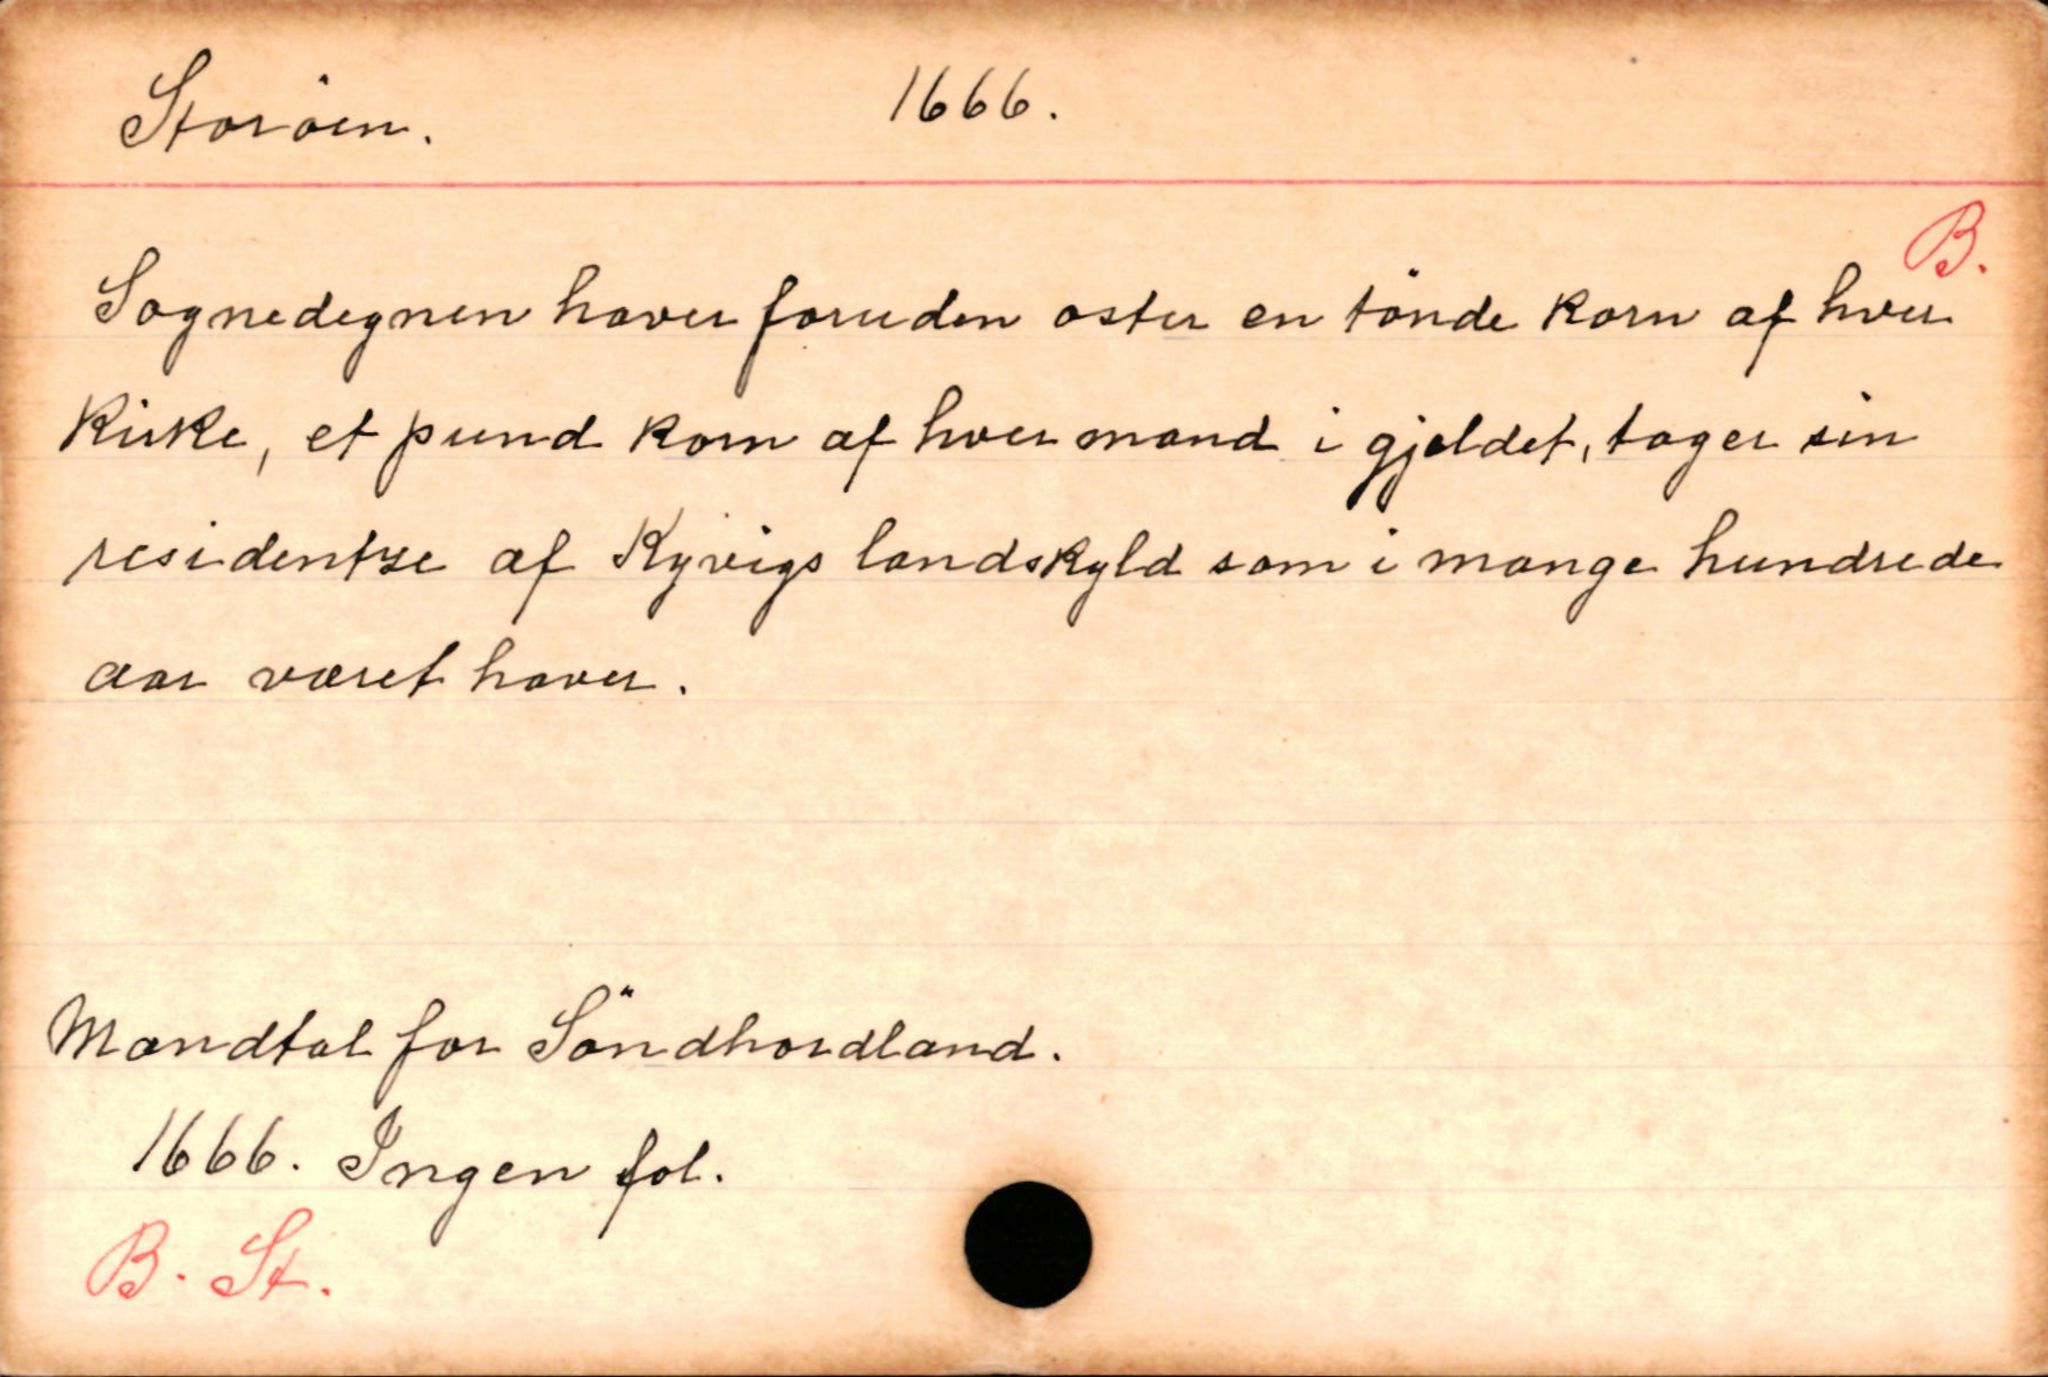 Storöen. 1666.
B.
Sognedegnen haver foruden oster en tönde korn af hver
Kirke, et pund korn af hver mand i gjeldet, tager sin
residentze af Kyvigs landskyld som i mange hundrede
aar været haver.
Mandtal for Söndhordland.
1666. Ingen fol.
B. St.